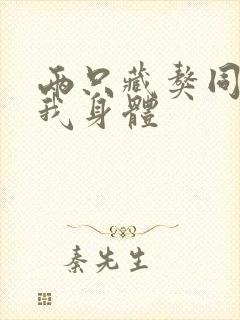 兩只藏獒同
我身體
秦先生